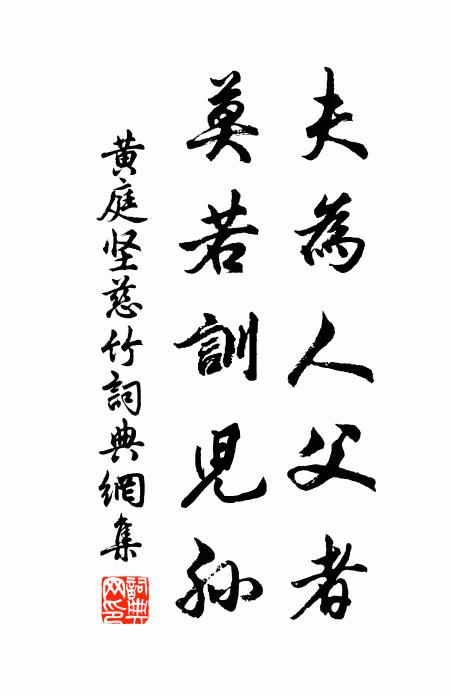 夫為人父者
莫若訓兒孫
黄庭坚慈竹詞典網集
詞典網印